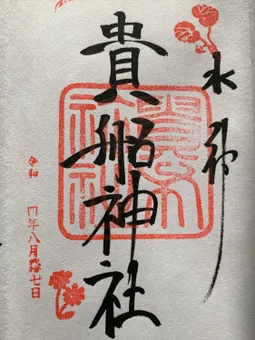 水神
貴船神社
令和
四年八月廿七日